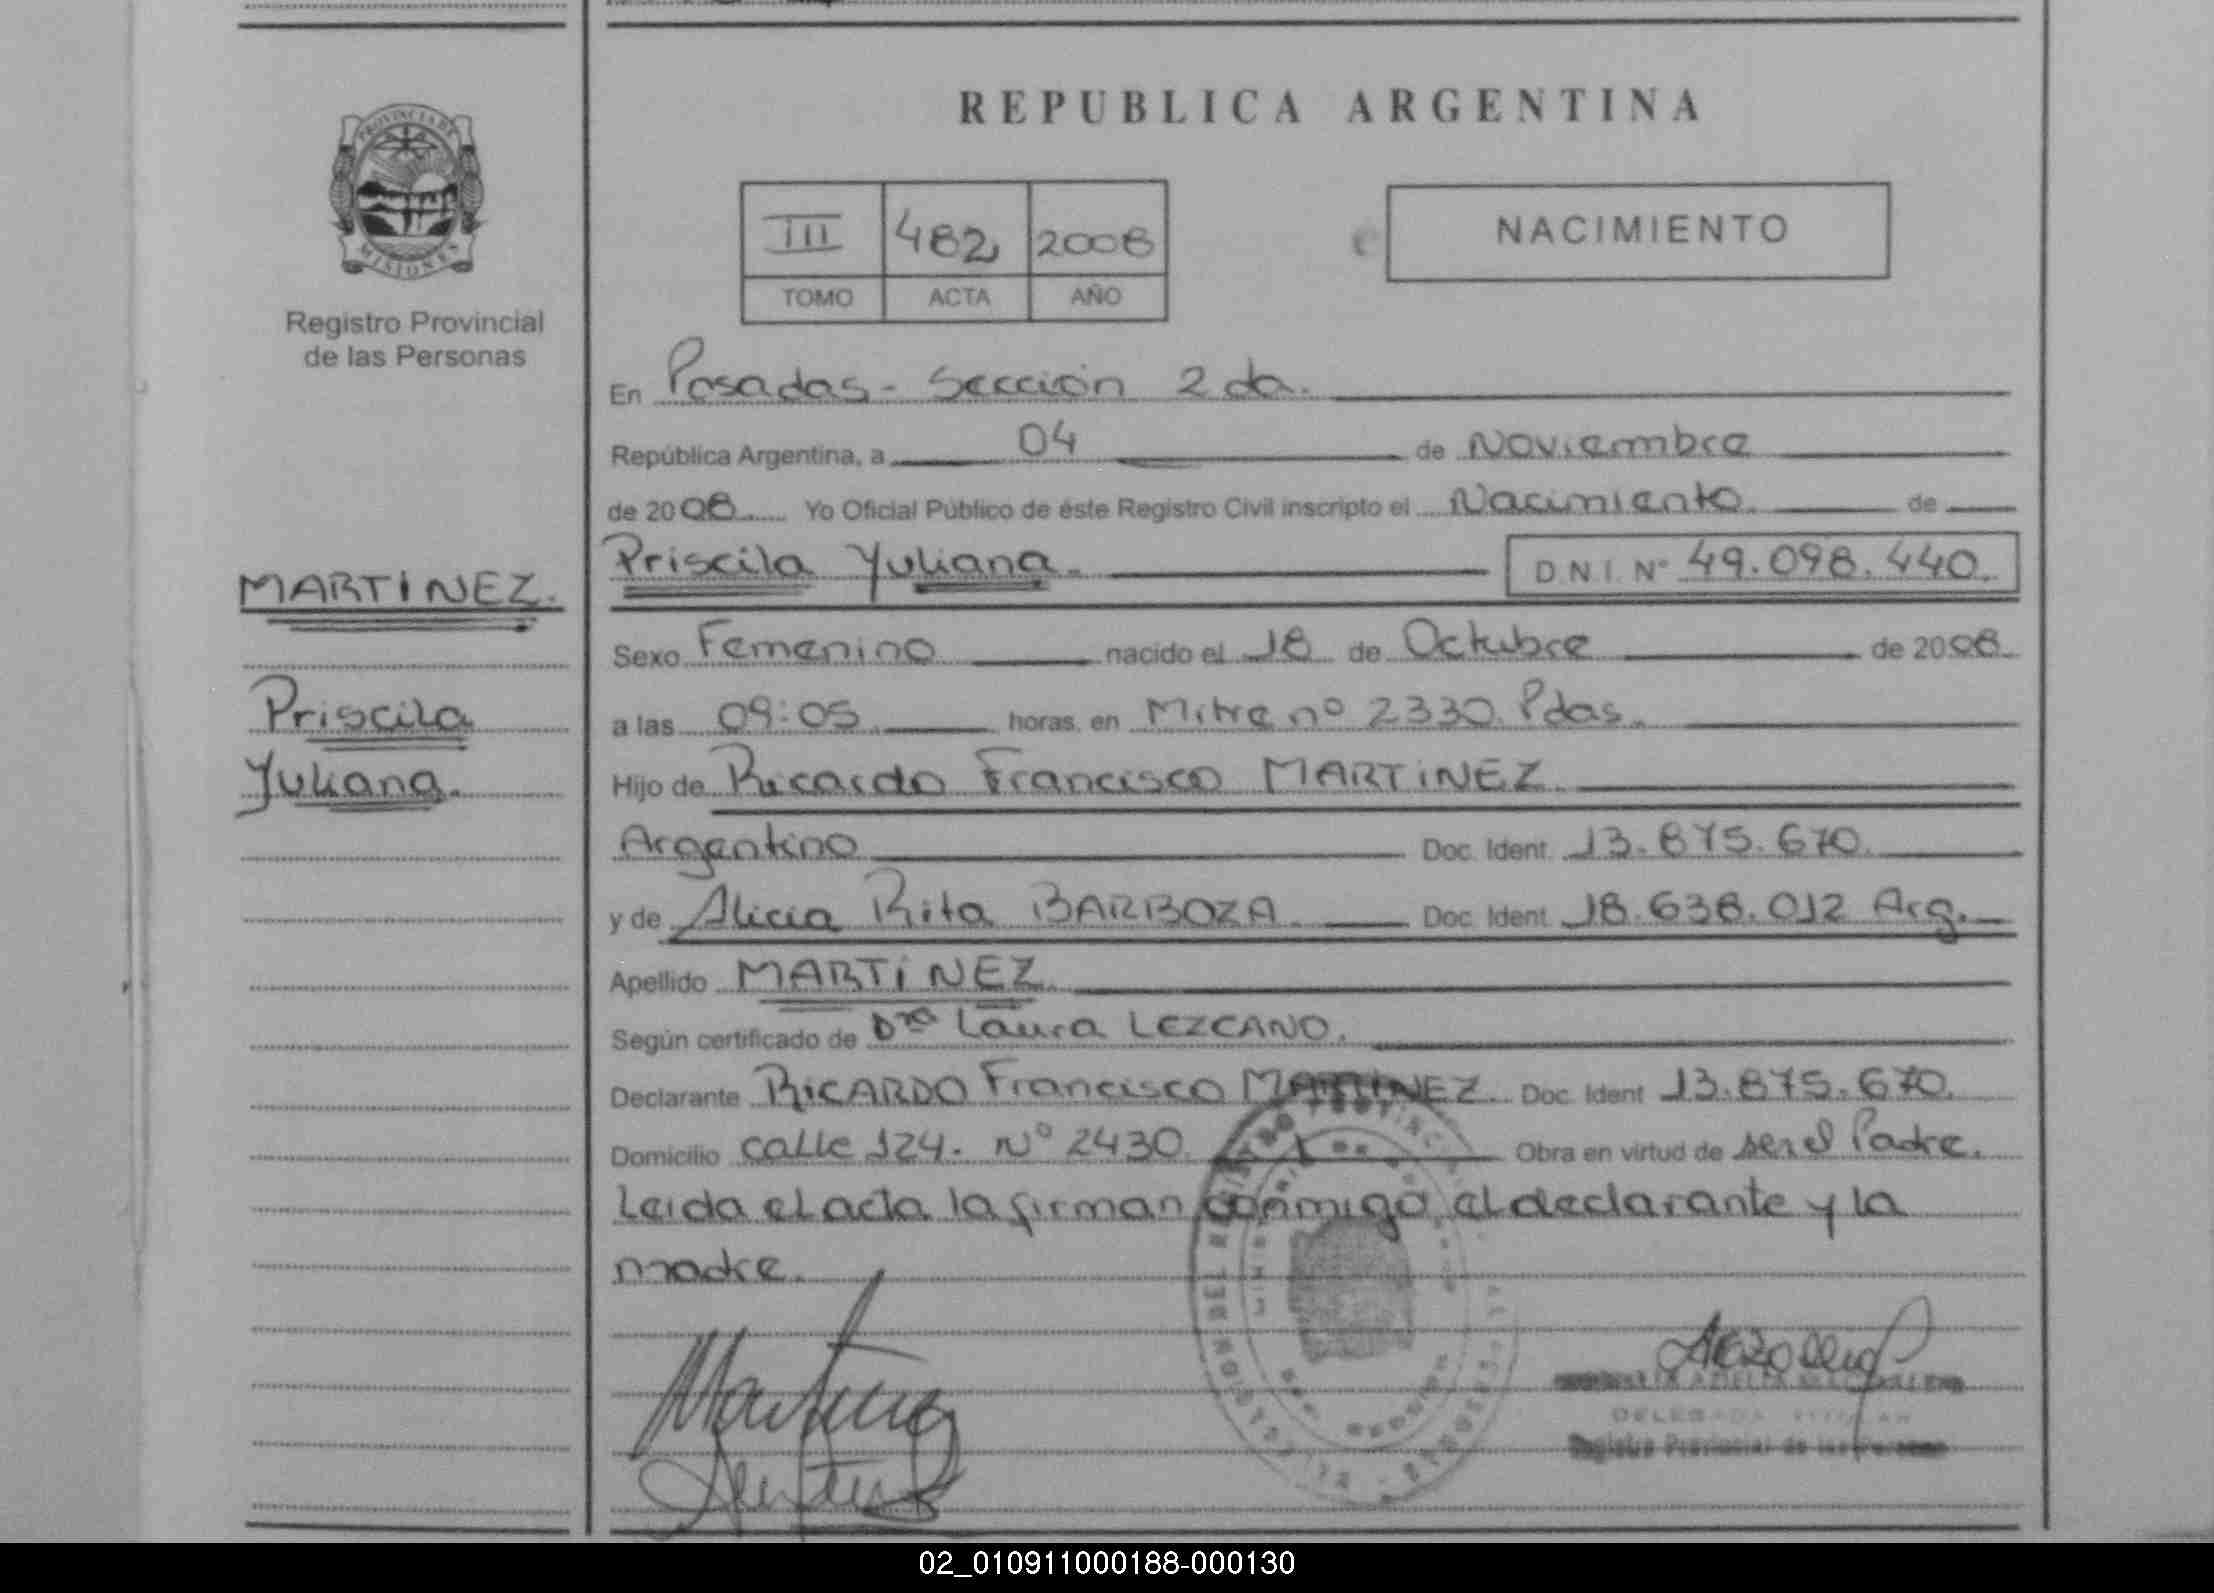 REPUBLICA ARGENTINA
PROVINCIA DE
MISIONES
Registro Provincial
de las Personas
III 482 2008
TOMO ACTA AÑO
NACIMIENTO
En Posadas - Sección 2da.
República Argentina, a 04 de Noviembre
de 2008 Yo Oficial Público de éste Registro Civil inscripto el Nacimiento. de
MARTINEZ.
Priscila Yuliana. D.N.I. Nº 49.098.440.
Sexo Femenino nacido el 18 de Octubre de 2008
Priscila
a las 09:05 horas, en Mitre nº 2330 Pdas.
Yuliana.
Hijo de Ricardo Francisco MARTINEZ
Argentino Doc. Ident. 13.875.670.
y de Alicia Rita BARBOZA Doc. Ident 18.638.012 Arg.
Apellido MARTINEZ.
Según certificado de Dra Laura LEZCANO.
Declarante RICARDO Francisco MARTINEZ. Doc. Ident 13.875.670.
Domicilio calle 124. Nº 2430. Obra en virtud de ser el Padre.
Leida el acta la firman conmigo el declarante y la
madre.
DELEGADA TITULAR
Registro Provincial de las Personas
02_010911000188-000130